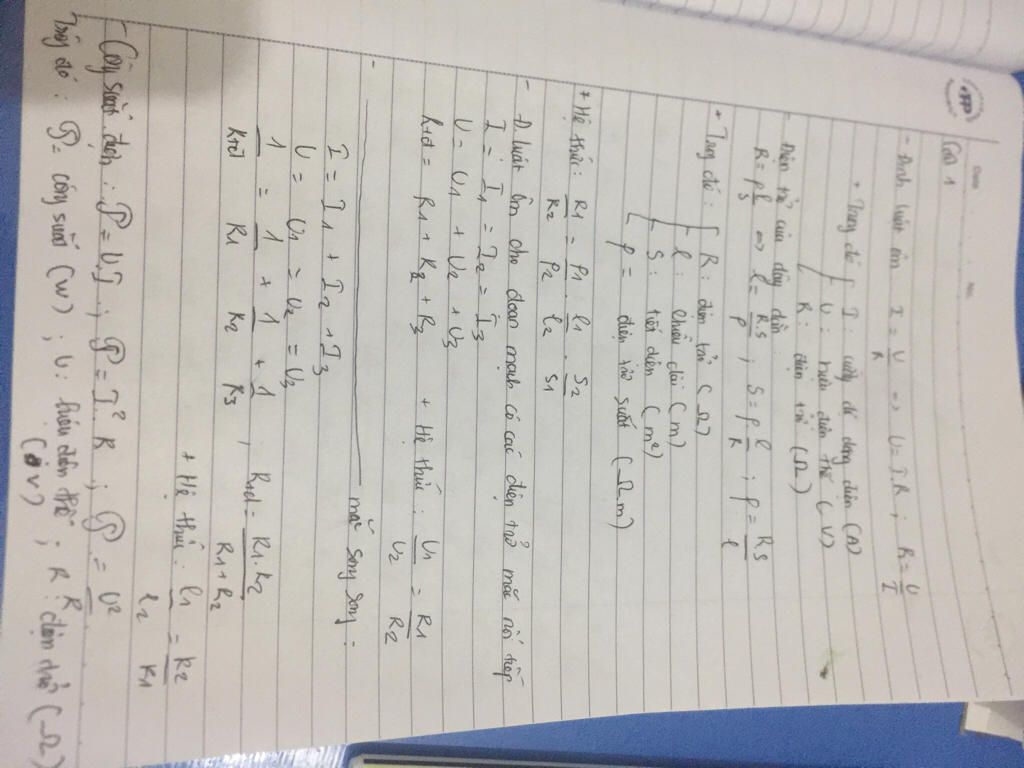 Date No.
Câu 1
- Định luật ôm I = U/R => U = I.R ; R = U/I
+ Trong đó { I : cường độ dòng điện (A)
U : hiệu điện thế (V)
R : điện trở (Ω)
- Điện trở của dây dẫn
R = ρl/S => l = RS/ρ ; S = ρl/R ; ρ = RS/l
+ Trong đó : [ R : điện trở (Ω)
l : chiều dài (m)
S : tiết diện (m²)
ρ = điện trở suất (Ω.m)
+ Hệ thức : R1/R2 = ρ1/ρ2 . l1/l2 . S2/S1
- Đ.luật ôm cho đoạn mạch có các điện trở mắc nối tiếp
I = I1 = I2 = I3
U = U1 + U2 + U3
Rtđ = R1 + R2 + R3 + Hệ thức : U1/U2 = R1/R2
- mắc song song :
I = I1 + I2 + I3
U = U1 = U2 = U3
1/Rtđ = 1/R1 + 1/R2 + 1/R3 , Rtđ = R1.R2/R1+R2
+ Hệ thức : I1/I2 = R2/R1
- Công suất điện : P = U.I ; P = I².R ; P = U²/R
Trong đó : P = công suất (W) ; U : hiệu điện thế (V) ; R : điện trở (Ω)